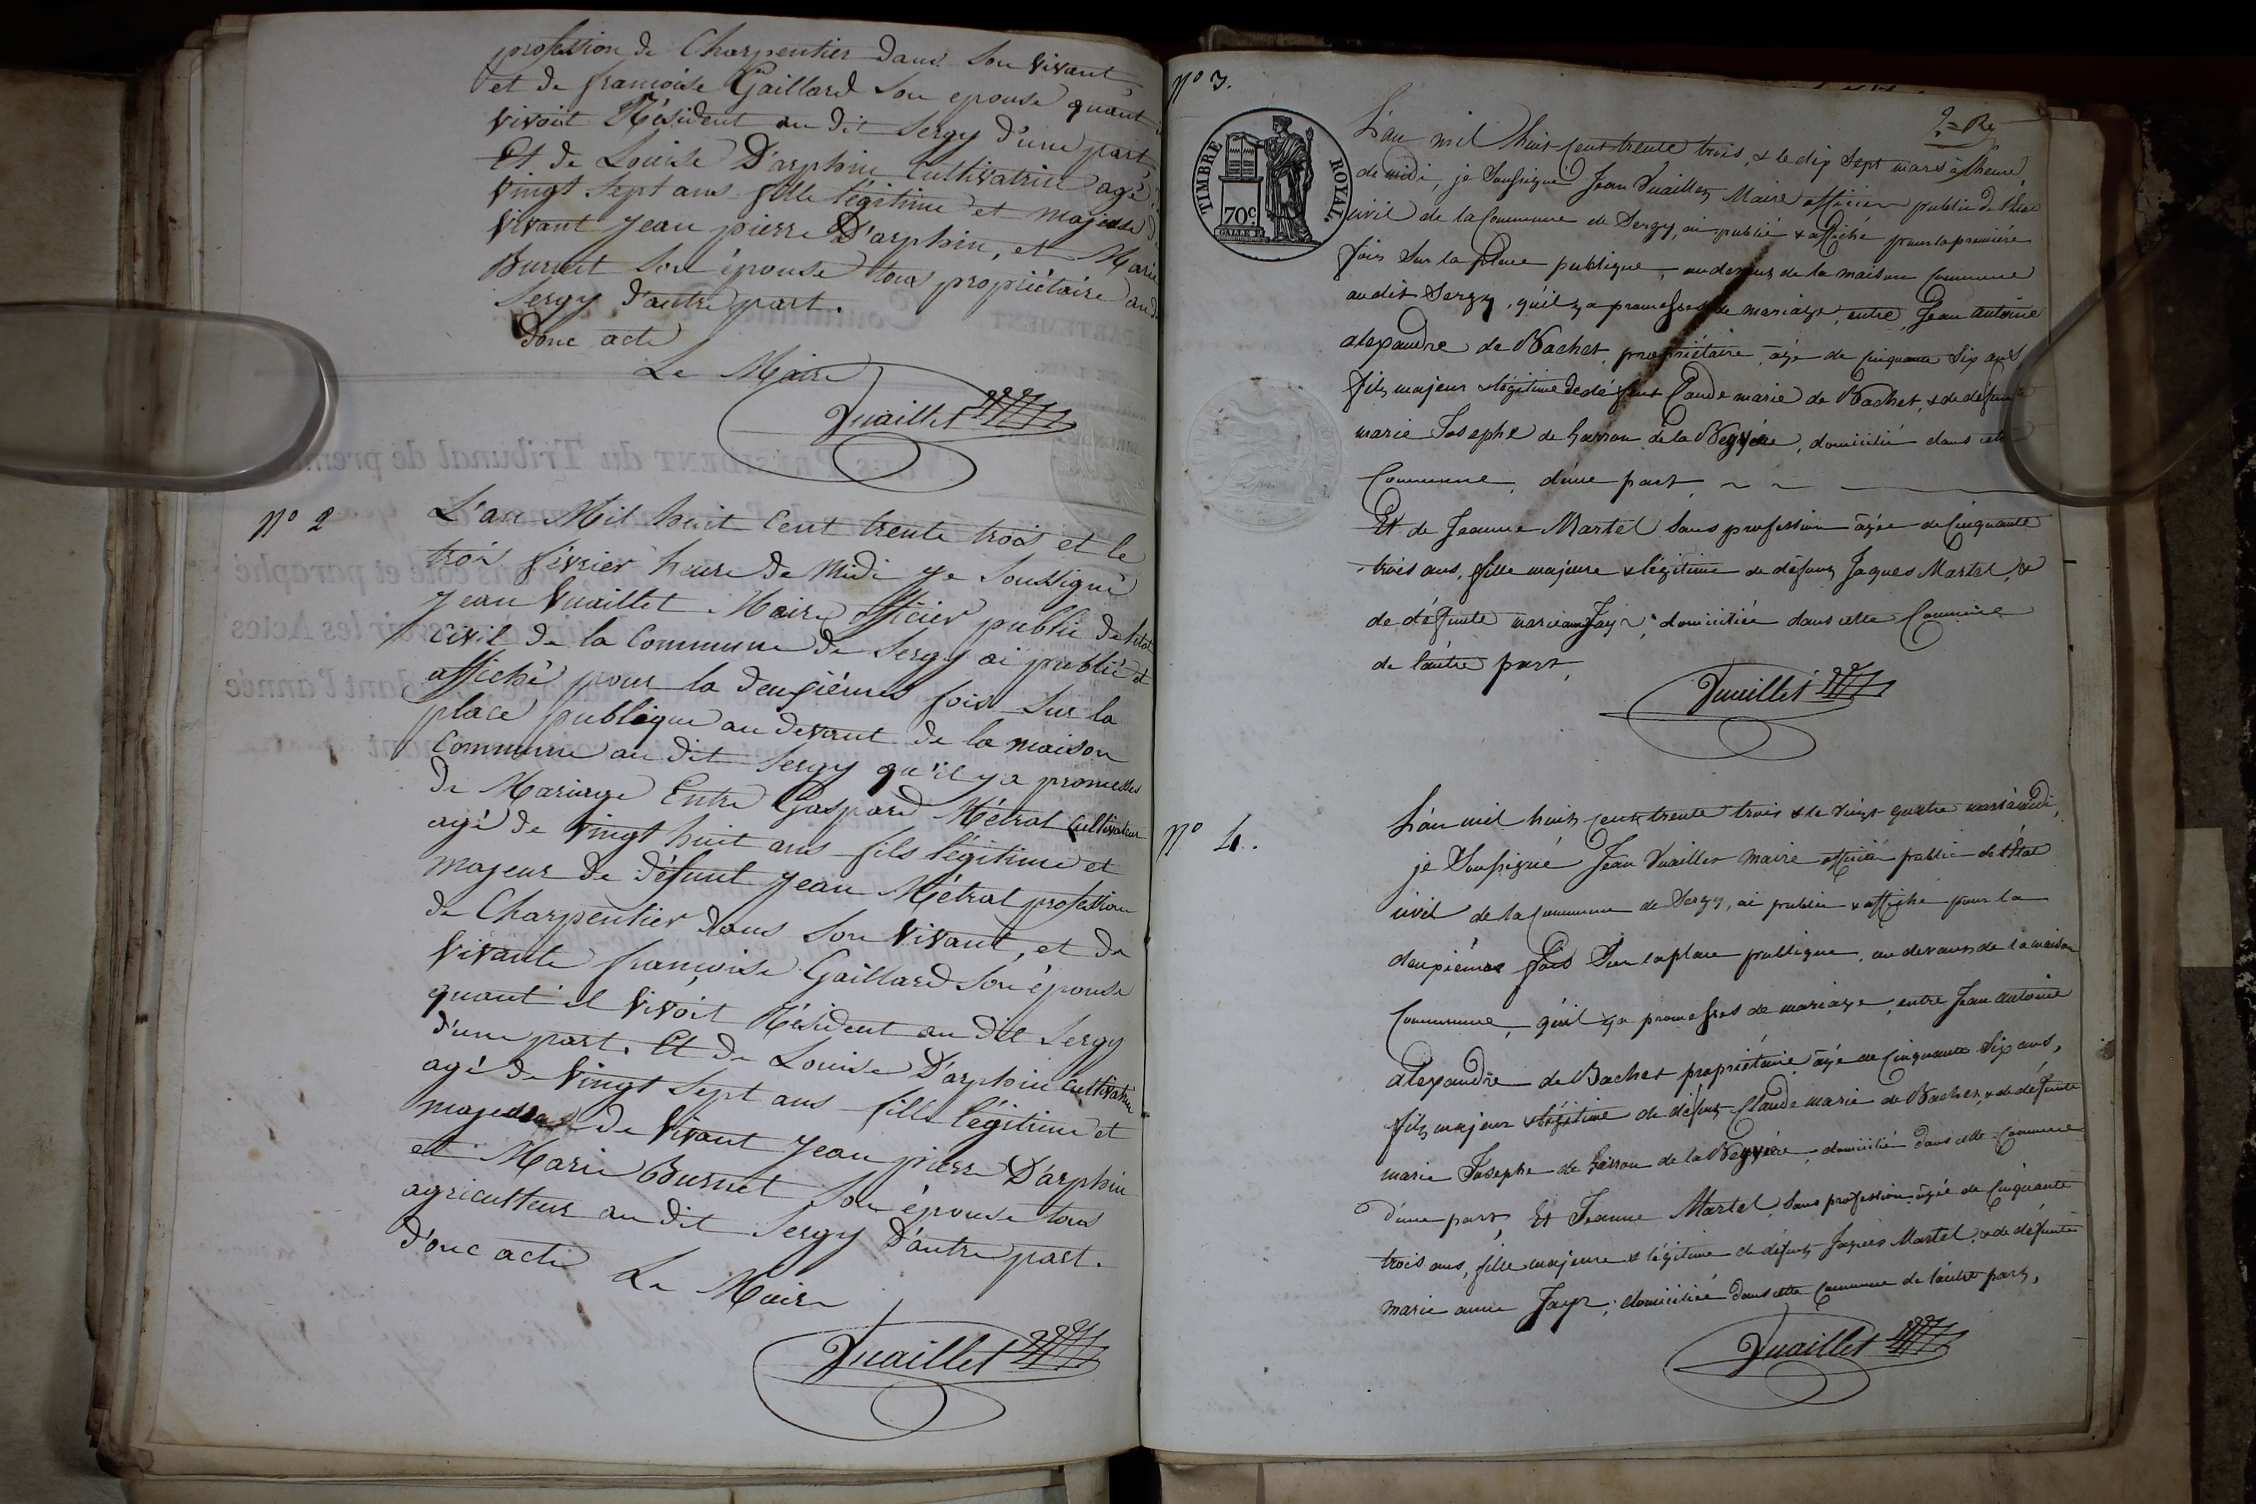 profession de Charpentier dans son vivant
et de francoise Gaillard son epouse quant
vivoit Résident au dit Sergy d'une part
Et de Louise D'arphin Cultivatrice agé
vingt sept ans fille légitime et majeure
vivant jean pierre D'arphin, et Marie
Burnet son épouse tous propriétaire au
Sergy d'autre part.
Donc acte
Le Maire
Vuaillet
N° 2
L'an Mil huit Cent trente trois et le
trois février heure de Midi je Soussigné
Jean Vuaillet Maire officier public de l'état
Civil de la Commune de Sergy ai publié et
affiché pour la deuxiémes fois sur la
place publique au devant de la maison
Commune au dit Sergy qu'il y a promesses
de Mariage Entre Gaspard Métral Cultivateur
agé de vingt huit ans fils légitime et
majeur de défunt jean Métral profession
de Charpentier dans son vivant, et de
vivante françoise Gaillard son épouse
quant il vivoit Résident au dit Sergy
d'une part. Et de Louise D'arphin Cultivatrice
agé de vingt sept ans fille légitime et
majeure de vivant jean pierre D'arphin
et Marie Burnet son épouse tous
agriculteur au dit Sergy d'autre part.
D'onc acte
Le Maire
Vuaillet
N° 3.
TIMBRE ROYAL
70c
L'an mil huit cent trente trois, & le dix sept mars à l'heure
de midi, je soussigné Jean Vuaillet Maire officier public de l'état
civil de la Commune de Sergy, ai publié & affiché pour la première
fois sur la place publique, au devant de la maison Commune
audit Sergy, qu'il y a promesses de mariage, entre Jean antoine
alexandre de Bachet, propriétaire, âgé de cinquante six ans
fils majeur & légitime de défunt Claude marie de Bachet, & de défunte
marie Josephe de de la, domicilié dans cette
Commune, d'une part,
Et de Jeanne Martel sans profession âgée de Cinquante
trois ans, fille majeure & légitime de défunt Jaques Martel, &
de défunte marie anne Jayr, domiciliée dans cette Commune
de l'autre part,
Vuaillet
N° 4.
L'an mil huit cent trente trois & le vingt quatre mars à midi,
je soussigné Jean Vuaillet maire officier public de l'état
civil de la Commune de Sergy, ai publié & affiché pour la
deuxième fois sur la place publique, au devant de la maison
Commune, qu'il y a promesses de mariage, entre Jean antoine
alexandre de Bachet propriétaire, âgé de cinquante six ans,
fils majeur & légitime de défunt Claude marie de Bachet, & de défunte
marie Josephe de de la, domicilié dans cette Commune
d'une part, Et Jeanne Martel sans profession âgée de Cinquante
trois ans, fille majeure & légitime de défunt Jaques Martel, & de défunte
marie anne Jayr, domiciliée dans cette Commune de l'autre part,
Vuaillet